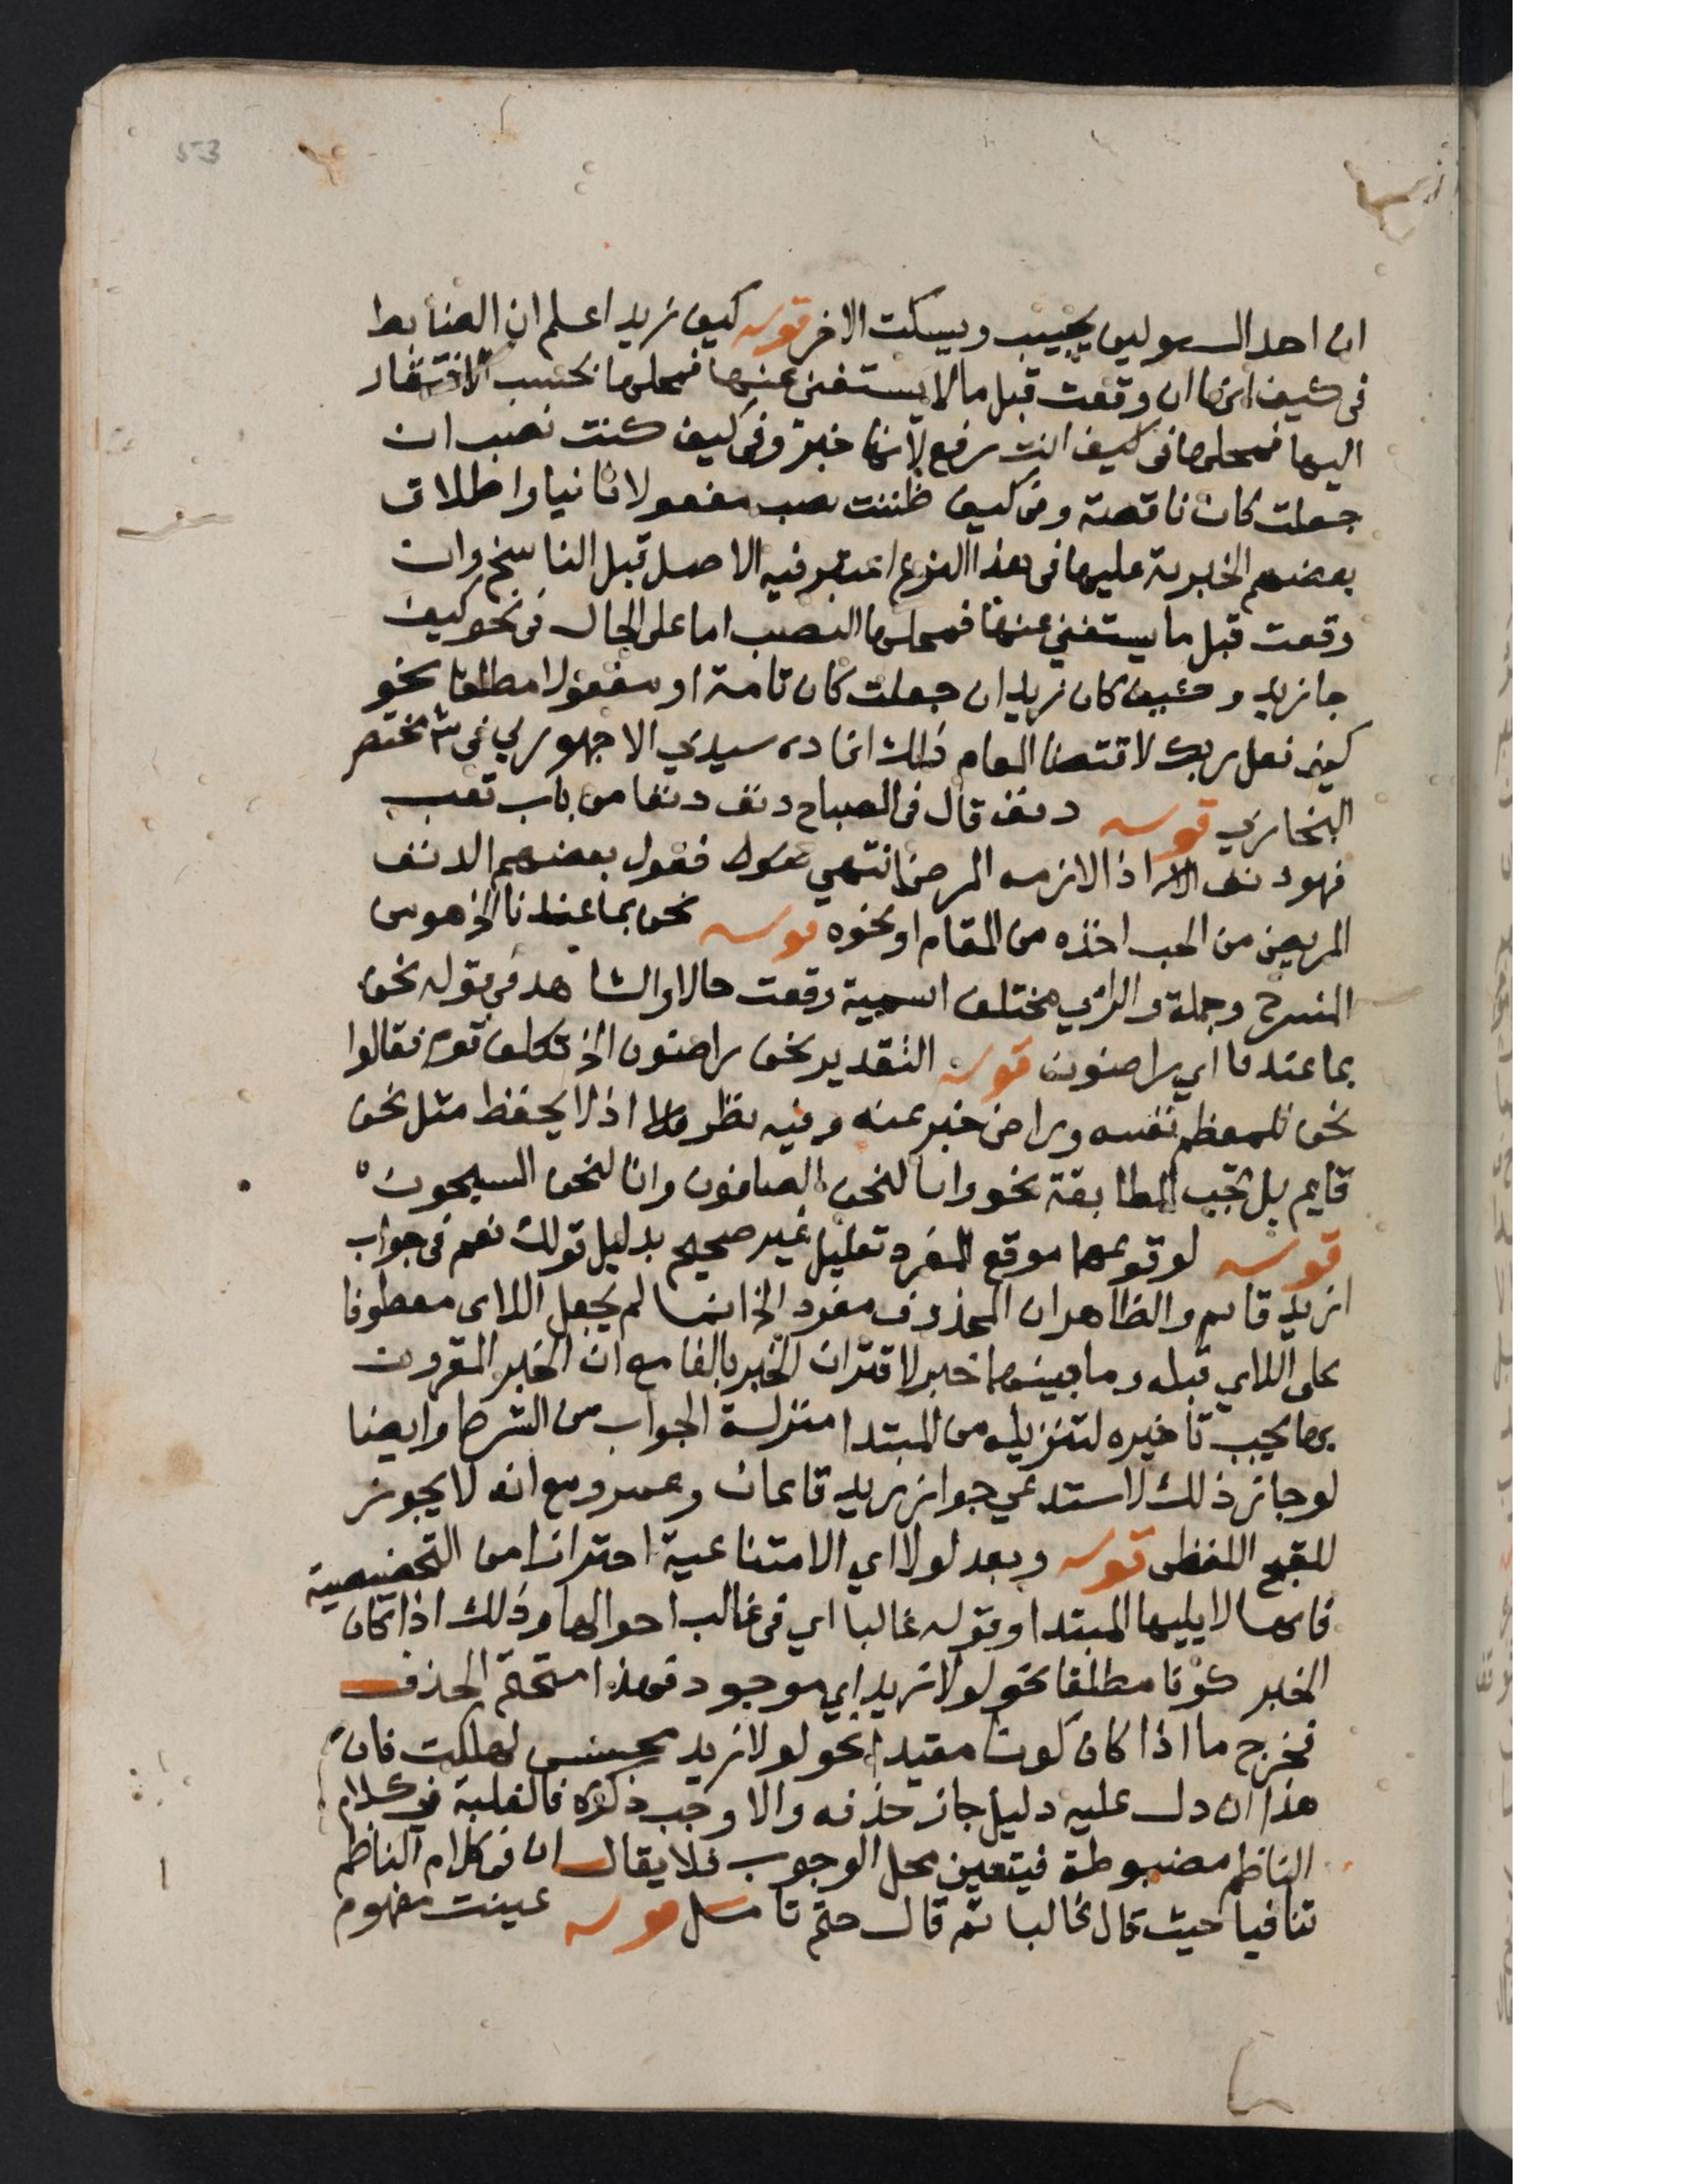 53
ان احد السولين يجيب ويسكت الاخر قوله كيف زيد اعلم ان الضابط
فى كيف انها ان وقعت قبل ما لا يستغنى عنها فمحلها بحسب الافتقار
اليها فمحلها فى كيف انت رفع لانها خبر وفى كيف كنت نصب ان
جعلت كان ناقصة وفى كيف ظننت نصب مفعولا ثانيا واطلاق
بعضهم الخبرية عليها فى هذا النوع اعتبر فيه الاصل قبل الناسخ وان
وقعت قبل ما يستغنى عنها فمحلها النصب اما على الحال فى نحو كيف
جا زيد وكيف كان زيد ان جعلت كان تامة او مفعولا مطلقا نحو
كيف فعل ربك لاقتضا المقام ذلك افاده سيدي الاجهوري في ش مختصر
البخاري قوله دنف قال فى المصباح دنف دنفا من باب تعب
فهو دنف اذا لازمه المرض انتهى فقول بعضهم الدنف
المريض من الحب اخذه من المقام او نحوه قوله نحن بما عندنا الخ هو من
المنسرح وجملة والراي مختلف اسمية وقعت حالا والشاهد في قوله نحن
بما عندنا اي راضون قوله التقدير نحن راضون الخ تكلف قوم فقالوا
نحن للمعظم نفسه وراض خبر عنه وفيه نظر اذ لا يحفظ مثل نحن
قايم بل تجب المطابقة نحو وانا لنحن الصافون وانا لنحن المسبحون
قوله لوقوعها موقع المفرد تعليل غير صحيح بدليل قولك نعم فى جواب
ازيد قايم والظاهر ان المحذوف مفرد الخ انما لم يجعل اللاى معطوفا
على اللاي قبله وما بينهما خبر لاقتران الخبر بالفا مع ان الخبر المقرون
بها يجب تاخيره لتنزيله من المبتدا منزلة الجواب من الشرط وايضا
لو جاز ذلك لاستدعي جواز زيد قايمان وعمرو مع انه لا يجوز
للقبح اللفظى قوله وبعد لولا اي الامتناعية احترازا من التحضيضية
فانها لا يليها المبتدا وقوله غالبا اي فى غالب احوالها وذلك اذا كان
الخبر كونا مطلقا نحو لولا زيد اي موجود فهذا متحتم الحذف
فخرج ما اذا كان كونا مقيدا نحو لولا زيد محسن لهلكت فان
هذا ان دل عليه دليل جاز حذفه والا وجب ذكره فالغلبة في كلام
الناظم مضبوطة فيتعين محل الوجوب فلا يقال ان فى كلام الناظم
تنافيا حيث قال غالبا ثم قال حتم تامل قوله عينت مفهوم